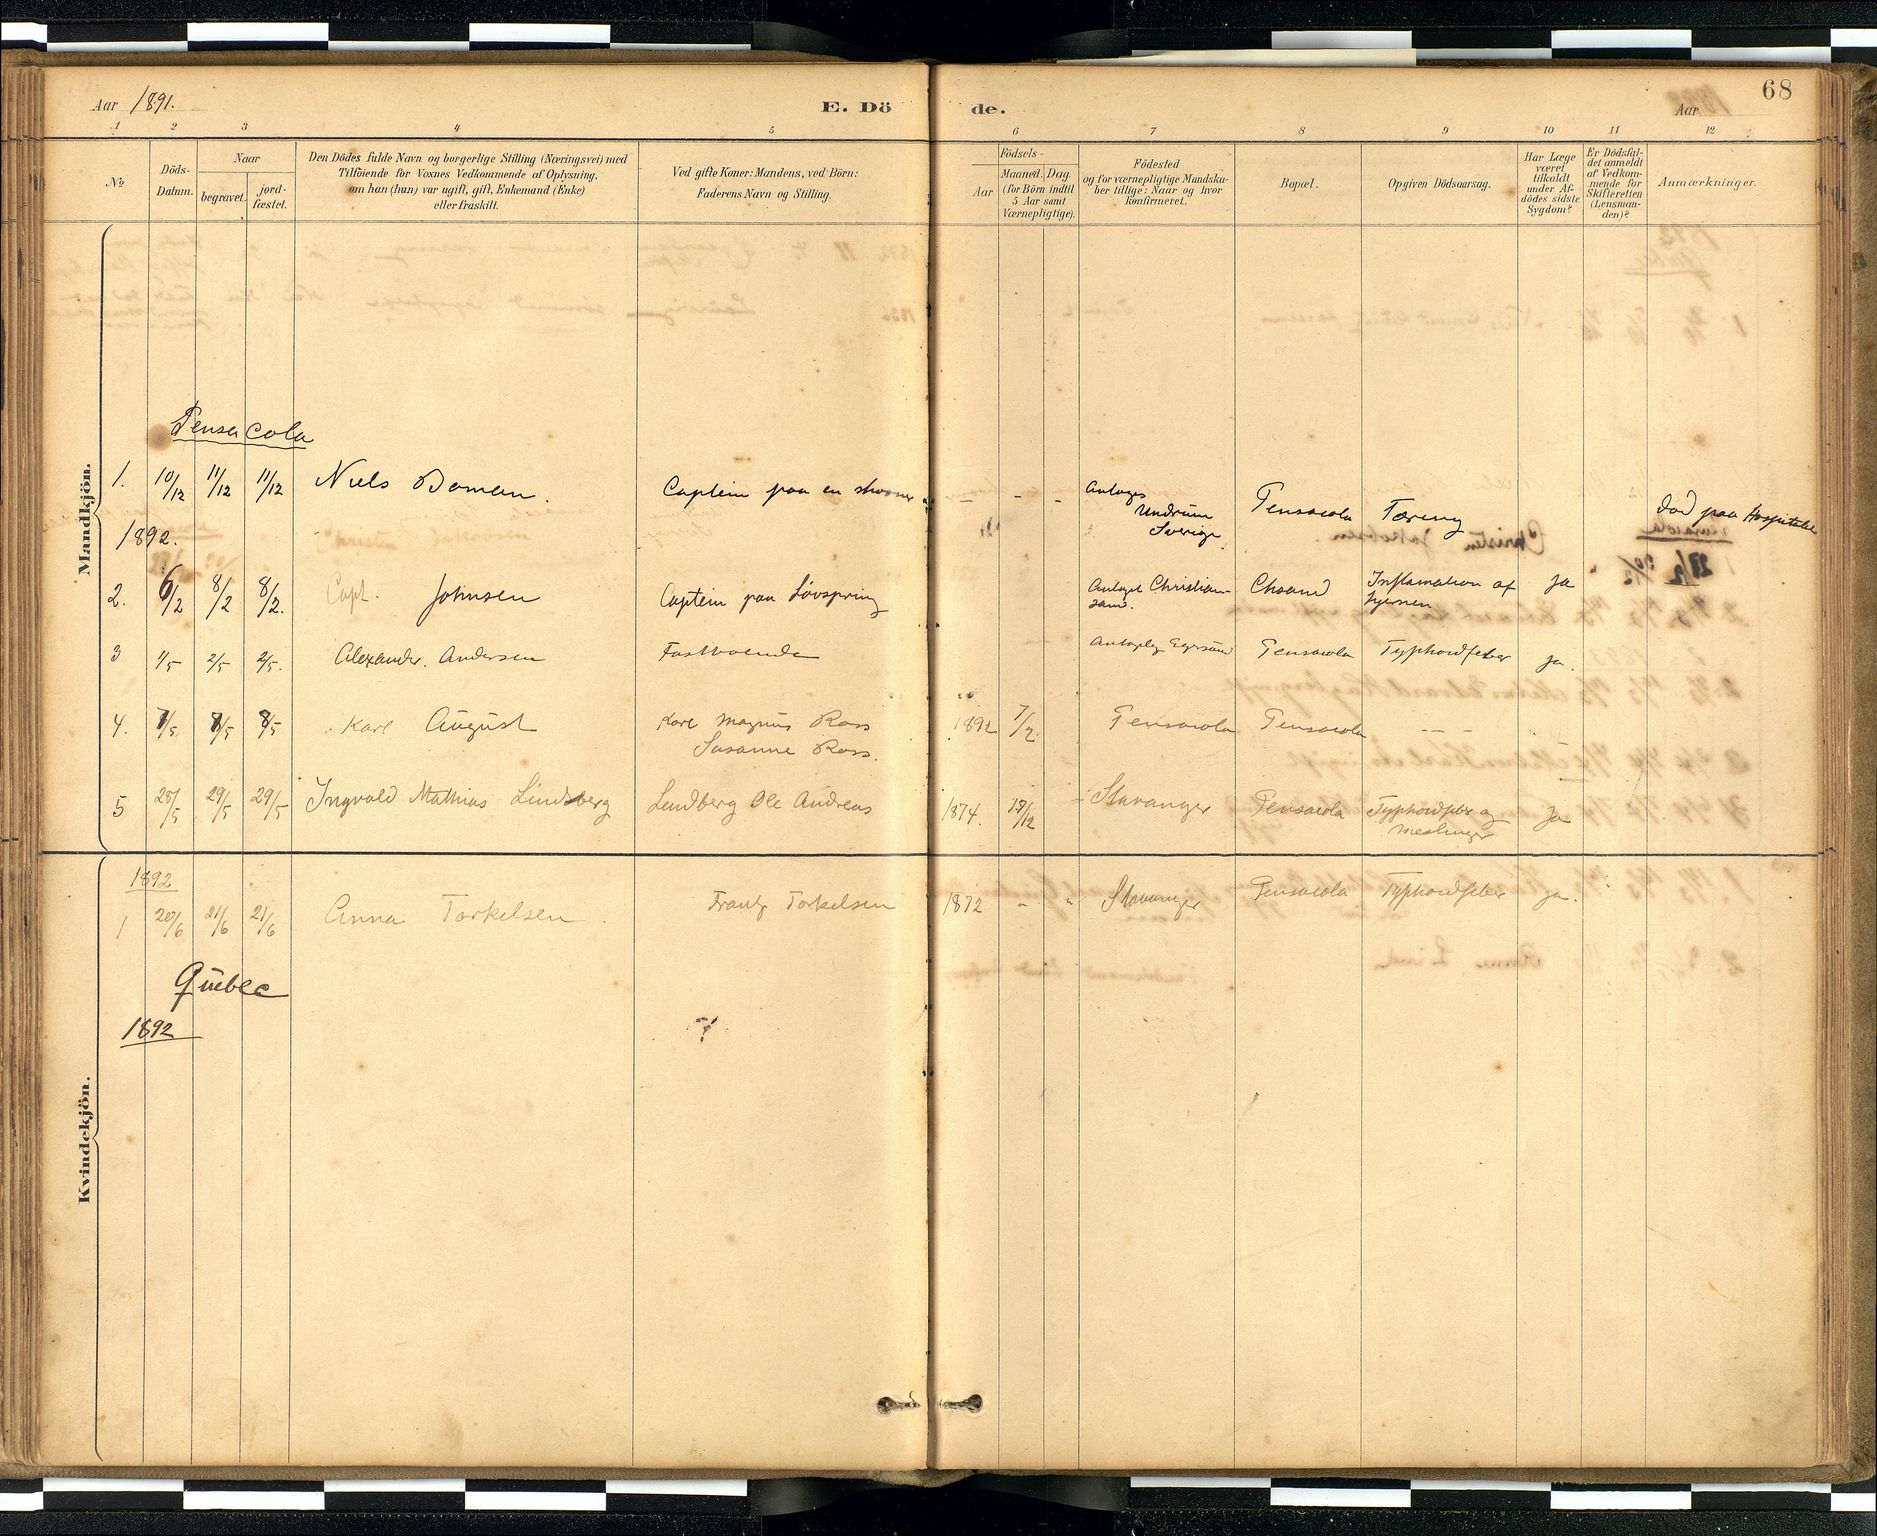 Aar 1891.
E. Dö de.
Aar
68
1 2 3 4 5 6 7 8 9 10 11 12
No
Döds-
Datum.
Naar
begravet.
jord-
fæstet.
Den Dödes fulde Navn og borgerlige Stilling (Næringsvei) med
Tilföiende for Voxnes Vedkommende af Oplysning,
om han (hun) var ugift, gift, Enkemand (Enke)
eller fraskilt.
Ved gifte Koner: Mandens, ved Börn:
Faderens Navn og Stilling.
Födsels-
Aar
Maaned. Dag.
(for Börn indtil
5 Aar samt
Værnepligtige).
Födested
og for værnepligtige Mandska-
ber tillige: Naar og hvor
konfirmeret.
Bopæl.
Opgiven Dödsaarsag.
Har Læge
været
tilkaldt
under Af-
dödes sidste
Sygdom?
Er Dödsfal-
det anmeldt
af Vedkom-
mende for
Skifteretten
(Lensman-
den)?
Anmærkninger.
Mandkjön.
Pensacola
1. 10/12 11/12 11/12 Niels Boman. Captein paa en - - - Antages Pensacola Tæring Död paa Hospitalet
Undrum
Sverige
1892.
2. 6/2 8/2 8/2. Capt. Johnsen Captein paa Løvspring Christian- Chsand Inflamation af Ja
sand. Hjernen
3 1/5 2/5 2/5. Alexander. Andersen Fastboende Antaglig Egersund Pensacola Typhoidfeber Ja.
4. 7/5 8/5 8/5 Karl August Karl Magnus Ross 1892 7/2. Pensacola Pensacola - - -
Susanne Ross.
5 28/5 29/5 29/5 Ingvald Mathias Lindberg Lendberg Ole Andreas 1874. 19/12 Stavanger Pensacola Typhoidfeber og Ja
Meslinger
Kvindekjön.
1892
1 20/6 21/6 21/6 Anna Torkelsen Frantz Torkelsen 1872 - " Stavanger Pensacola Typhoidfeber Ja.
Quebec
1892
?